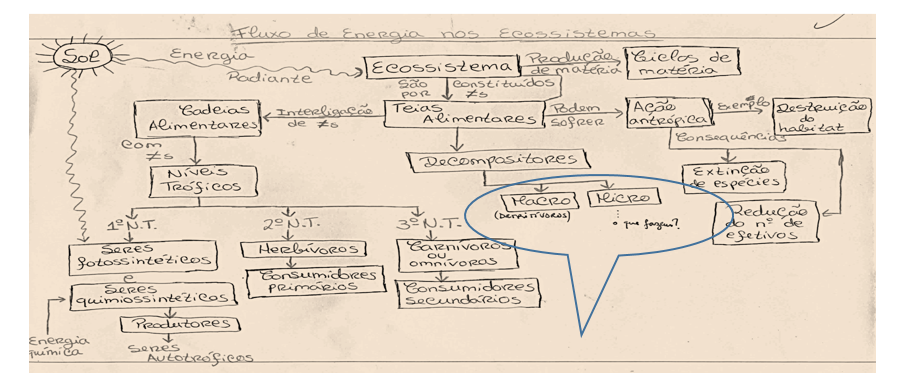 Fluxo de Energia nos Ecossistemas
Sol
Energia
Radiante
Ecossistema
Produção
de matéria
Ciclos de
matéria
São
por
Constituídos
≠s
Cadeias
Alimentares
Interligação
de ≠s
Teias
Alimentares
Podem
sofrer
Ação
antrópica
Exemplo
Destruição
do
habitat
Com
≠s
Consequências
Níveis
Tróficos
Decompositores
Extinção
de espécies
Macro
(Detritívoros)
Micro
o que fazem?
Redução
do nº de
efetivos
1º N.T.
2º N.T.
3º N.T.
Seres
fotossintéticos
e
Seres
quimiossintéticos
Herbívoros
Consumidores
primários
Carnívoros
ou
omnívoros
Consumidores
secundários
Produtores
Energia
química
Seres
Autotróficos